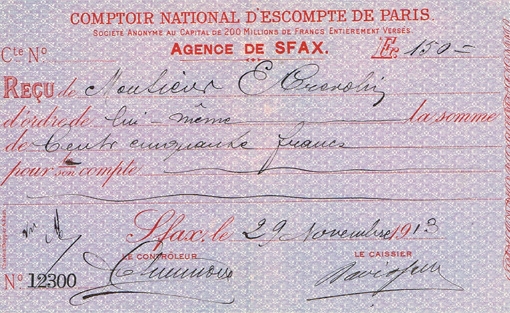 COMPTOIR NATIONAL D'ESCOMPTE DE PARIS.
SOCIÉTÉ ANONYME AU CAPITAL DE 200 MILLIONS DE FRANCS ENTIÈREMENT VERSÉS
AGENCE DE SFAX.
Cte No Frs 150=
REÇU de Monsieur E
d'ordre de lui-même la somme
de Cent cinquante francs
pour son compte
Sfax, le 29 Novembre 1913
LE CONTRÔLEUR LE CAISSIER
No 12300